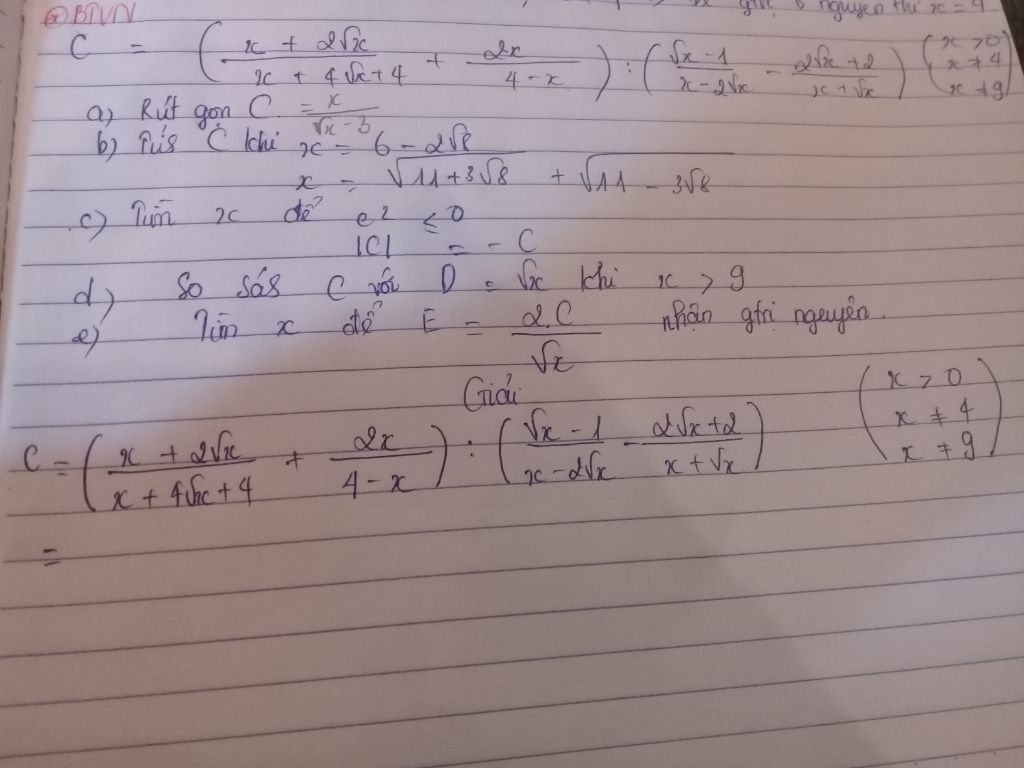 gtri nguyên thì x = 4
⊛ BTVN
C = ( (x + 2√x)/(x + 4√x + 4) + 2x/(4 - x) ) : ( (√x - 1)/(x - 2√x) - (2√x + 2)/(x + √x) ) ( x > 0 x ≠ 4 x ≠ 9 )
a) Rút gọn C = x/(√x - 3)
b) C khi x = 6 - 2√8
x = √(11 + 3√8) + √(11 - 3√8)
c) Tìm x để c² ≤ 0
|C| = - C
d) So sás C với D = √x khi x > 9
e) Tìm x để E = 2.C/√x nhận gtrị nguyên.
Giải
C = ( (x + 2√x)/(x + 4√x + 4) + 2x/(4 - x) ) : ( (√x - 1)/(x - 2√x) - (2√x + 2)/(x + √x) ) ( x > 0 x ≠ 4 x ≠ 9 )
=